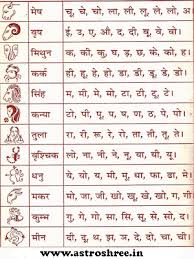 मेष चू, चे, चो, ला, ली, लू, ले, लो, अ।
वृष ई, उ, ए, औ, द, दी, वे, वो।
मिथुन क, की, कू, घ, छ, के, को, ह।
कर्क ही, हू, हे, हो, डा, डी, डू, डे, डो।
सिंह मा, मी, मू, मे, मो, टा, टी, टू, टे।
कन्या टो, प, पी, पू, ष, ण, ठ, पे, पो।
तुला रा, री, रू, रे, रो, ता, ती, तू, ते।
वृश्चिक लो, ना, नी, ने, नू, या, यी, यू।
धनु ये, यो, भी, भू, ध, फ, ढ, भे।
मकर जा, जी, खी, खू, खे, ग, गी।
कुम्भ गु, गे, गो, सा, सि, सू, से, सो, द।
मीन दी, दू, झ, दे, दो, चा, ची।
www.astroshree.in